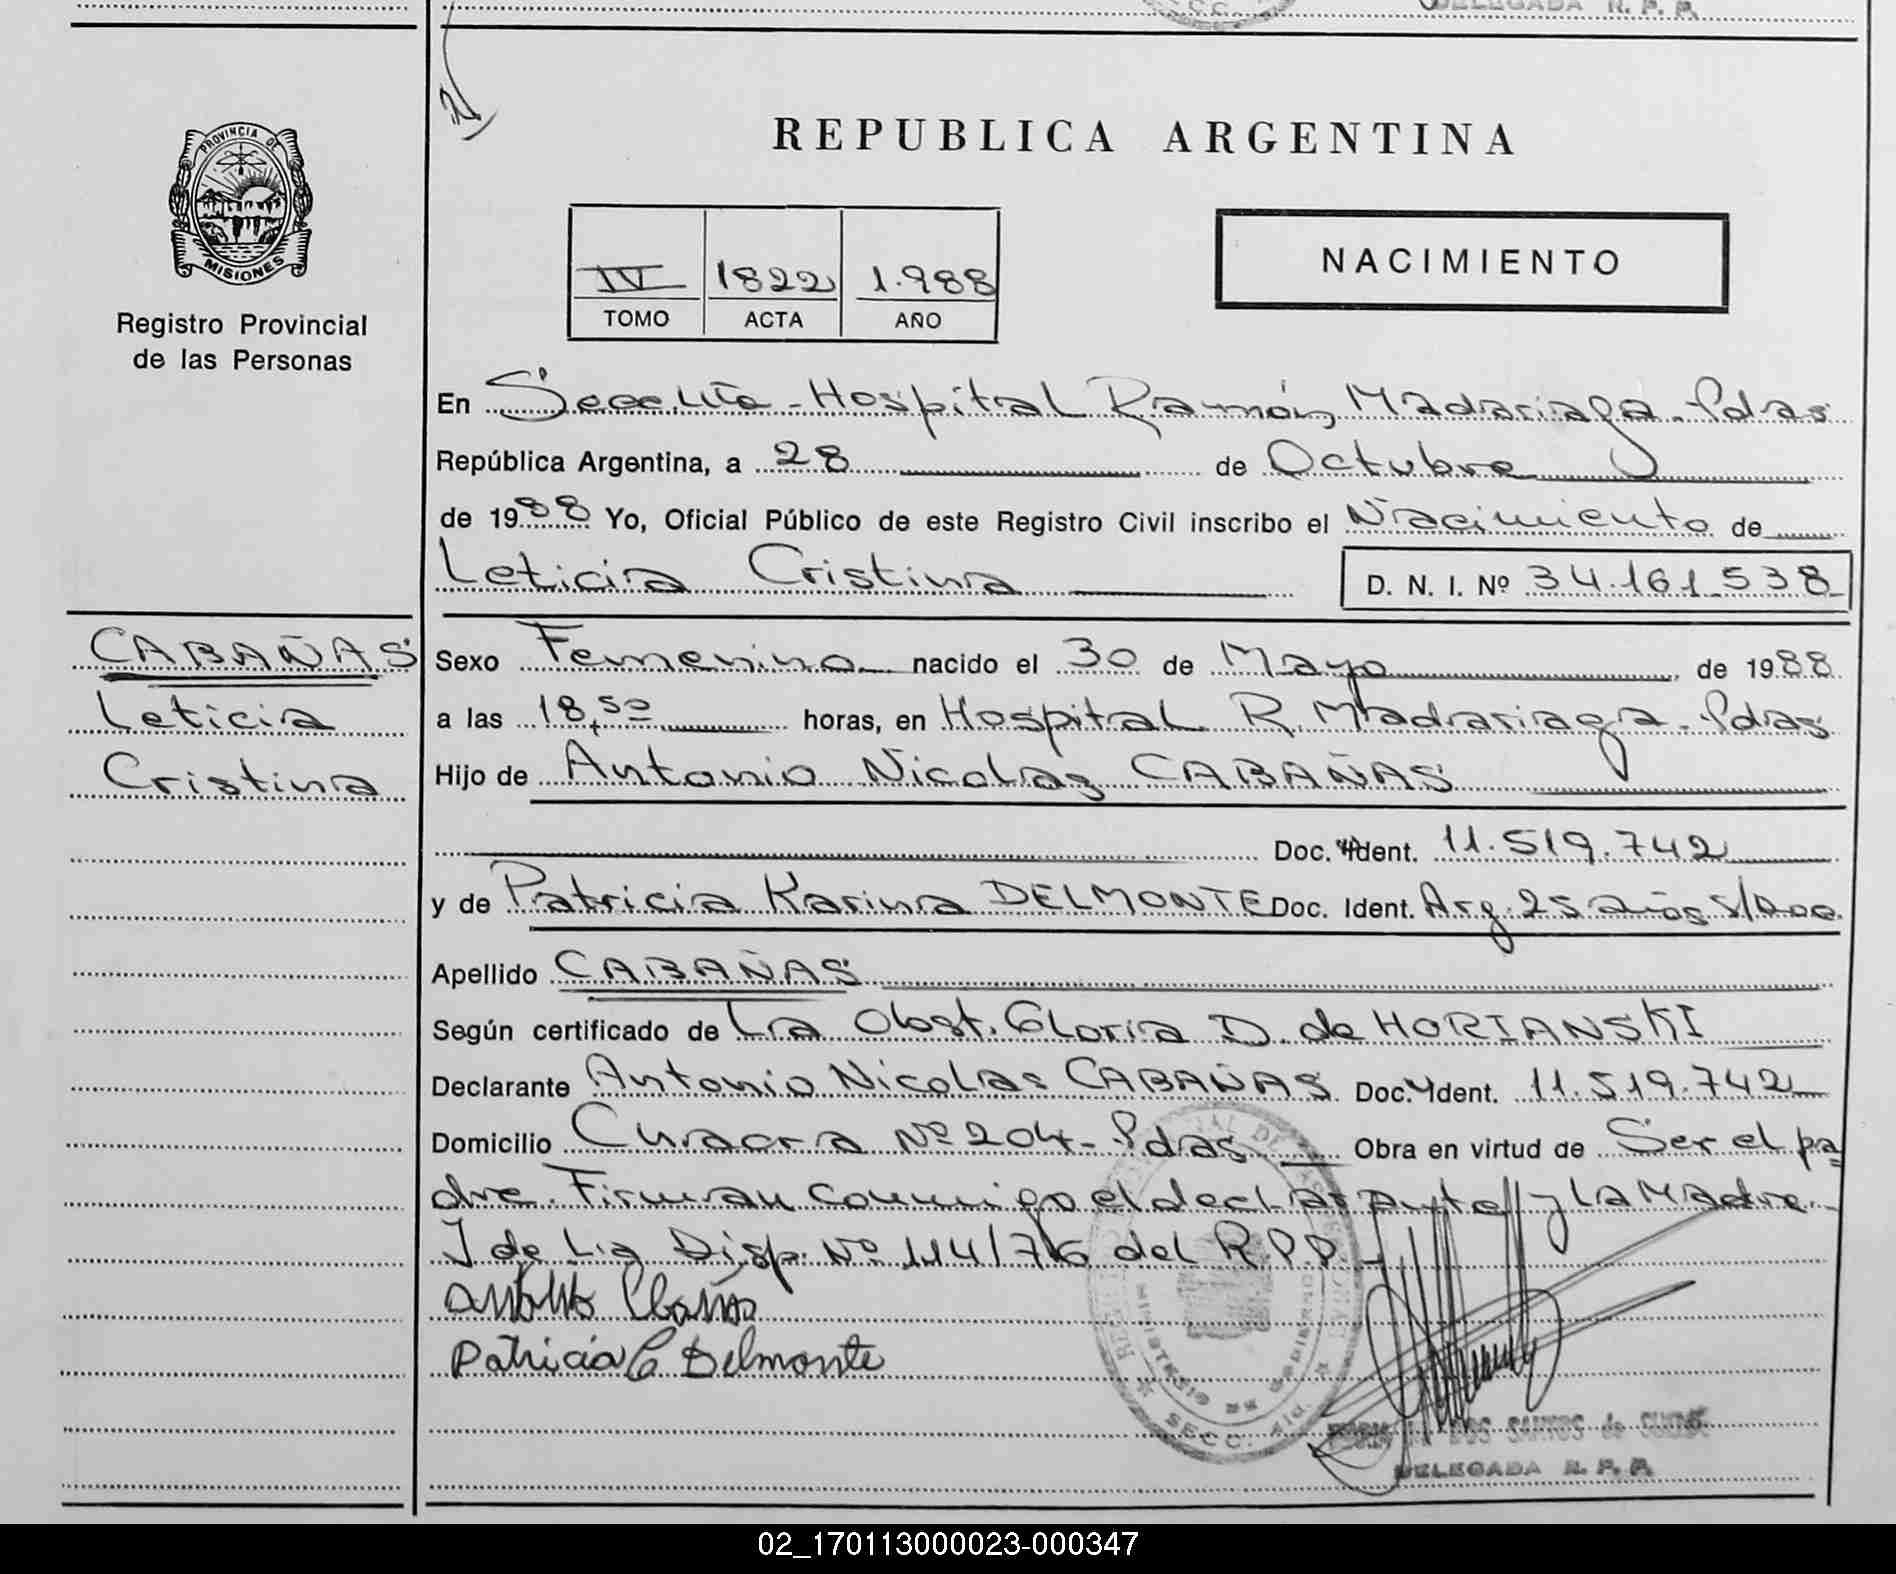 DELEGADA R. P. P.
PROVINCIA DE
MISIONES
Registro Provincial
de las Personas
REPUBLICA ARGENTINA
IV 1822 1.988
TOMO ACTA AÑO
NACIMIENTO
En Secc. 4ta - Hospital Ramón Madariaga - Pdas
República Argentina, a 28 de Octubre
de 1988 Yo, Oficial Público de este Registro Civil inscribo el Nacimiento de
Leticia Cristina D. N. I. Nº 34.161.538
CABAÑAS
Leticia
Cristina
Sexo Femenino nacido el 30 de Mayo de 1988
a las 18,50 horas, en Hospital R. Madariaga - Pdas
Hijo de Antonio Nicolas CABAÑAS
Doc. Ident. 11.519.742
y de Patricia Karina DELMONTE Doc. Ident. Arg. 25 años s/doc.
Apellido CABAÑAS
Según certificado de La Obst. Gloria D. de HORIANSKI
Declarante Antonio Nicolas CABAÑAS Doc. Ident. 11.519.742
Domicilio Nº 204 - Pdas Obra en virtud de Ser el pa=
dre. Firman conmigo el declarante y la Madre.
de la Disp. Nº 114/76 del R.P.P.
Patricia C Delmonte
SECC.
DOS SANTOS de
DELEGADA R. P. P.
02_170113000023-000347